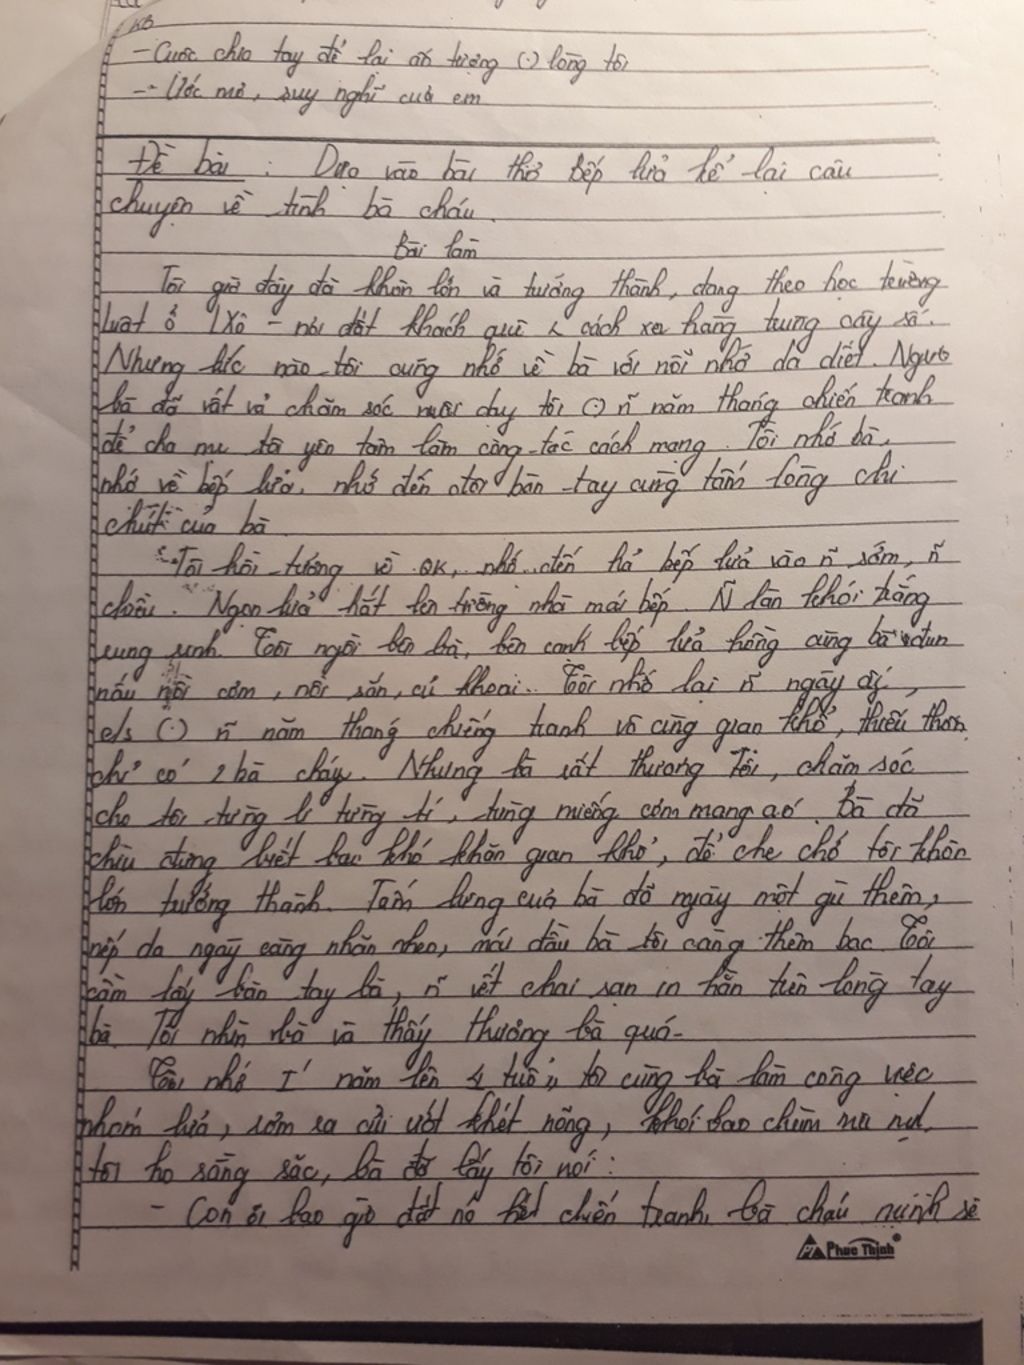 KB
- Cuộc chia tay để lại ấn tượng (.) lòng tôi
- Ước mơ, suy nghĩ của em
Đề bài : Dựa vào bài thơ Bếp lửa kể lại câu
chuyện về tình bà cháu.
Bài làm
Tôi giờ đây đã khôn lớn và trưởng thành, đang theo học trường
luật ở LXô - nơi đất khách quê cách xa hàng trung cây số.
Nhưng lúc nào tôi cũng nhớ về bà với nỗi nhớ da diết. Người
bà đã vất vả chăm sóc nuôi dạy tôi (.) ñ năm tháng chiến tranh
để cha mẹ tôi yên tâm làm công tác cách mạng. Tôi nhớ bà,
nhớ về bếp lửa, nhớ đến đôi bàn tay cùng tấm lòng chi
chút của bà
Tôi hồi tưởng về QK, nhớ đến bếp lửa vào ñ sớm, ñ
chiều. Ngọn lửa hắt lên tường nhà mái bếp. Ñ làn khói trắng
xung quanh. Tôi ngồi bên bà, bên cạnh bếp lửa hồng cùng bà đun
nấu nồi cơm, nồi sắn, củ khoai.. Tôi nhớ lại ñ ngày ấy,
c/s (.) ñ năm tháng chiếng tranh vô cùng gian khổ, thiếu thốn
chỉ có 2 bà cháy. Nhưng bà rất thương Tôi, chăm sóc
cho tôi từng li từng tí, từng miếng cơm mang aó. Bà đã
chịu đựng biết bao khó khăn gian khổ, để che chở tôi khôn
lớn trưởng thành. Tấm lưng của bà đã ngày một gù thêm,
nếp da ngày càng nhăn nheo, mái đầu bà tôi càng thêm bạc Tôi
cầm lấy bàn tay bà, ñ vết chai sạn in hằn trên lòng tay
bà. Tôi nhìn bà và thấy thương bà quá.
Tôi nhớ năm lên 4 tuổi, tôi cùng bà làm công việc
nhóm lửa, rơm rạ củi ướt khét nồng, khói bao chùm
tôi ho sằng sặc, bà đỡ lấy tôi nói :
- Con ơi bao giờ đất nó hết chiến tranh, bà cháu mình sẽ
Phuc Thịnh